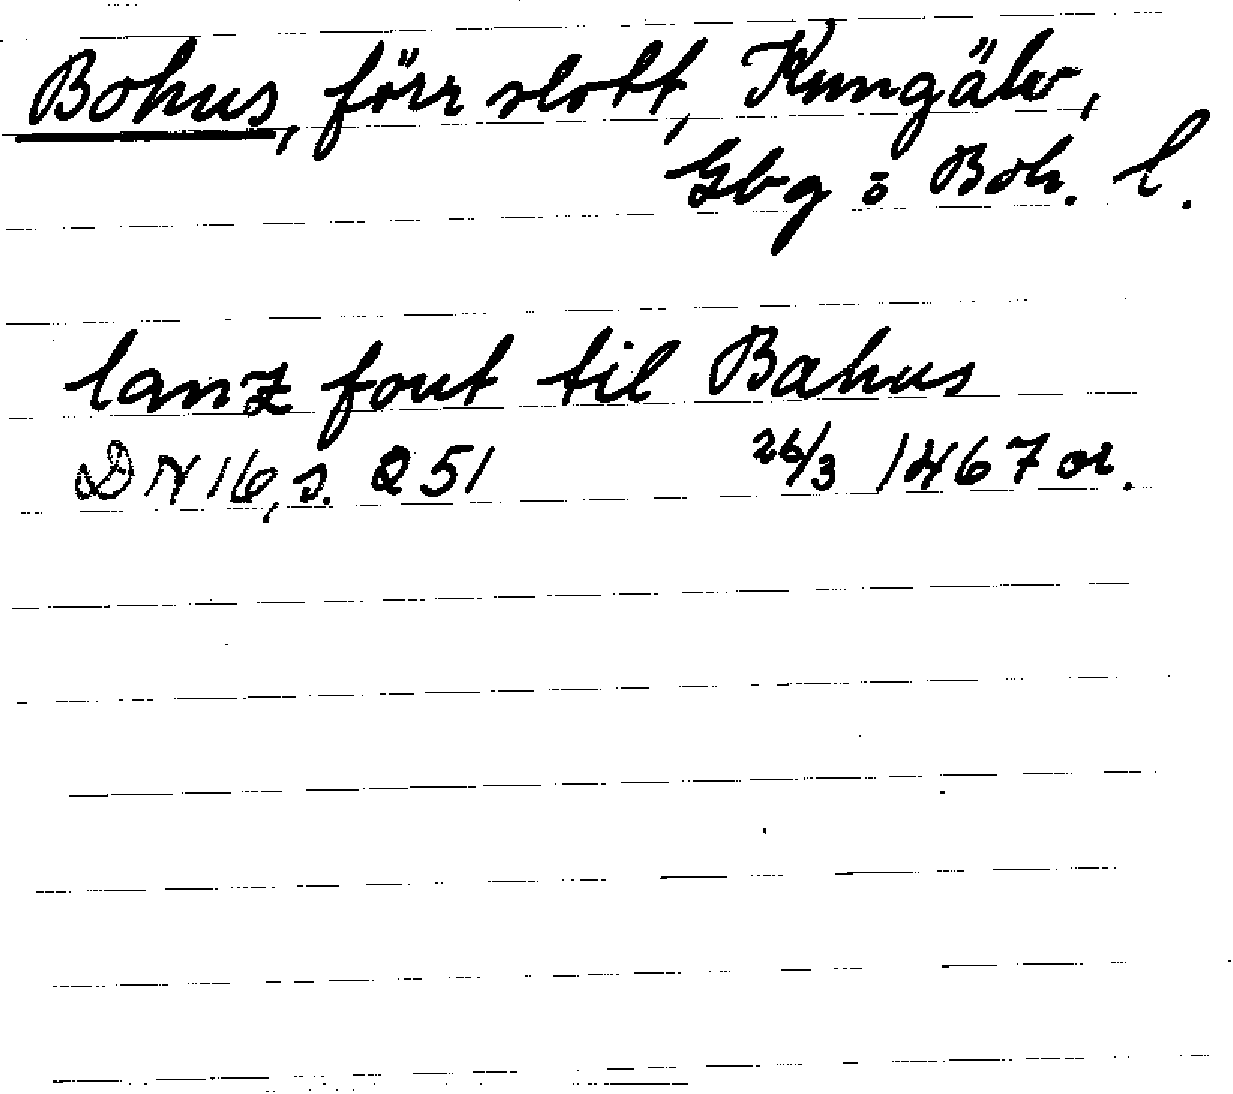 Bohus, förr slott, Kungälv,
Gbg o Boh. l.
lanz fout til Bahus
DN 16, s. 251 26/3 1467 or.